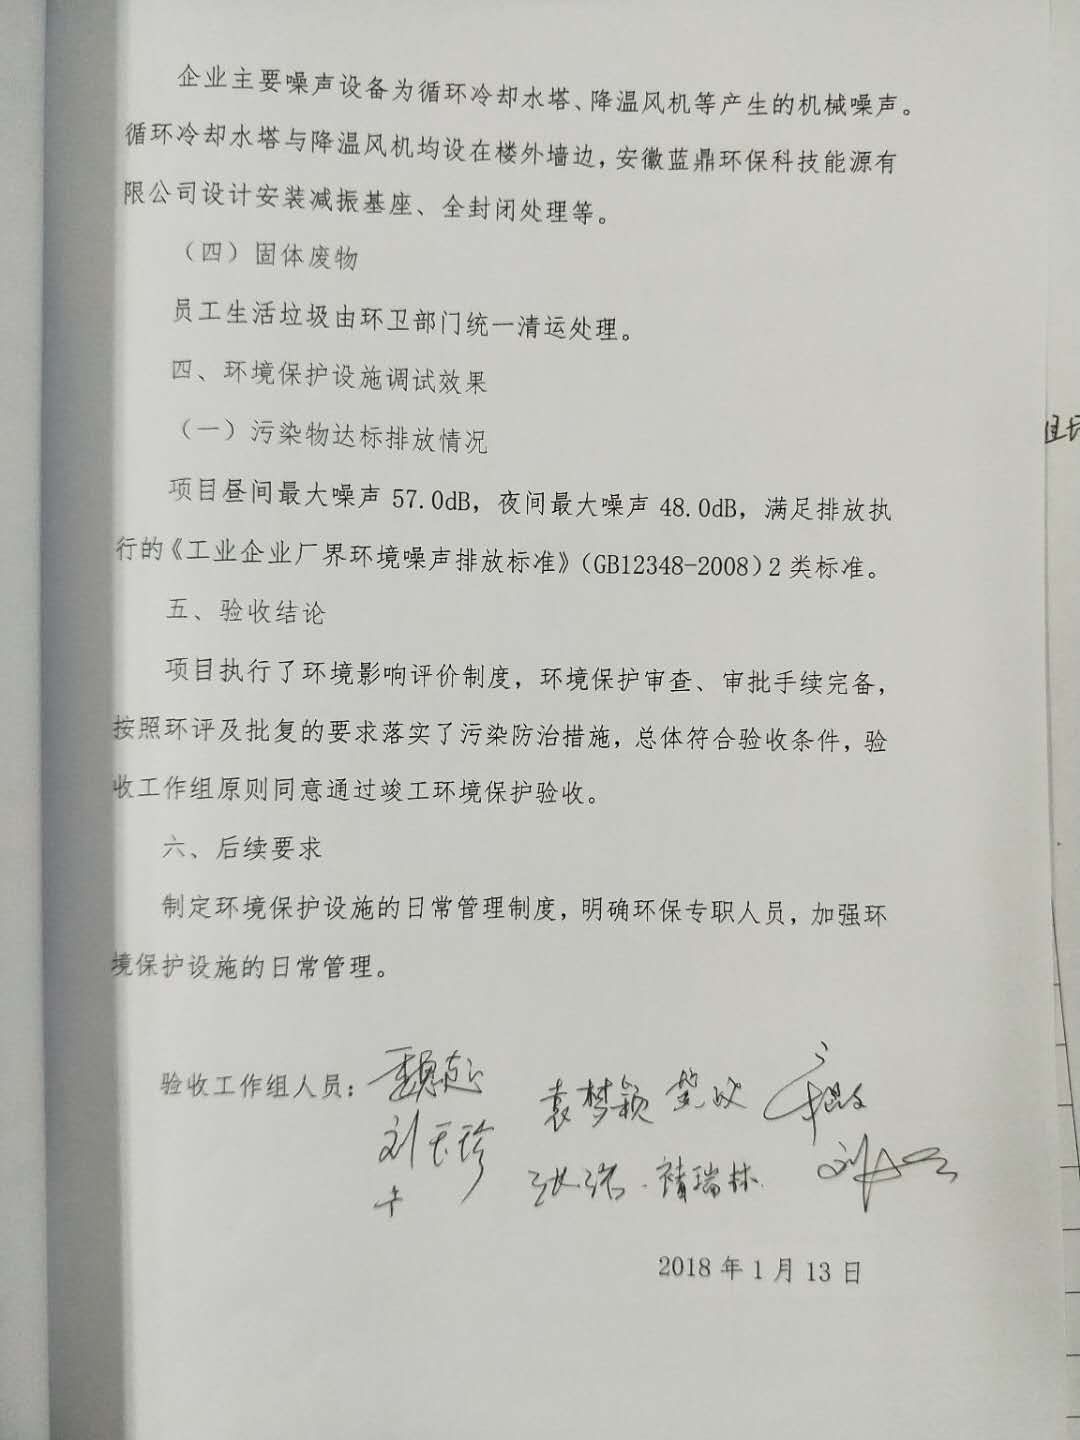 企业主要噪声设备为循环冷却水塔、降温风机等产生的机械噪声。
循环冷却水塔与降温风机均设在楼外墙边，安徽蓝鼎环保科技能源有
限公司设计安装减振基座、全封闭处理等。
（四）固体废物
员工生活垃圾由环卫部门统一清运处理。
四、环境保护设施调试效果
（一）污染物达标排放情况
项目昼间最大噪声57.0dB，夜间最大噪声48.0dB，满足排放执
行的《工业企业厂界环境噪声排放标准》（GB12348-2008）2类标准。
五、验收结论
项目执行了环境影响评价制度，环境保护审查、审批手续完备，
按照环评及批复的要求落实了污染防治措施，总体符合验收条件，验
收工作组原则同意通过竣工环境保护验收。
六、后续要求
制定环境保护设施的日常管理制度，明确环保专职人员，加强环
境保护设施的日常管理。
验收工作组人员： 袁梦颖
刘玉珍 褚瑞林
2018年1月13日